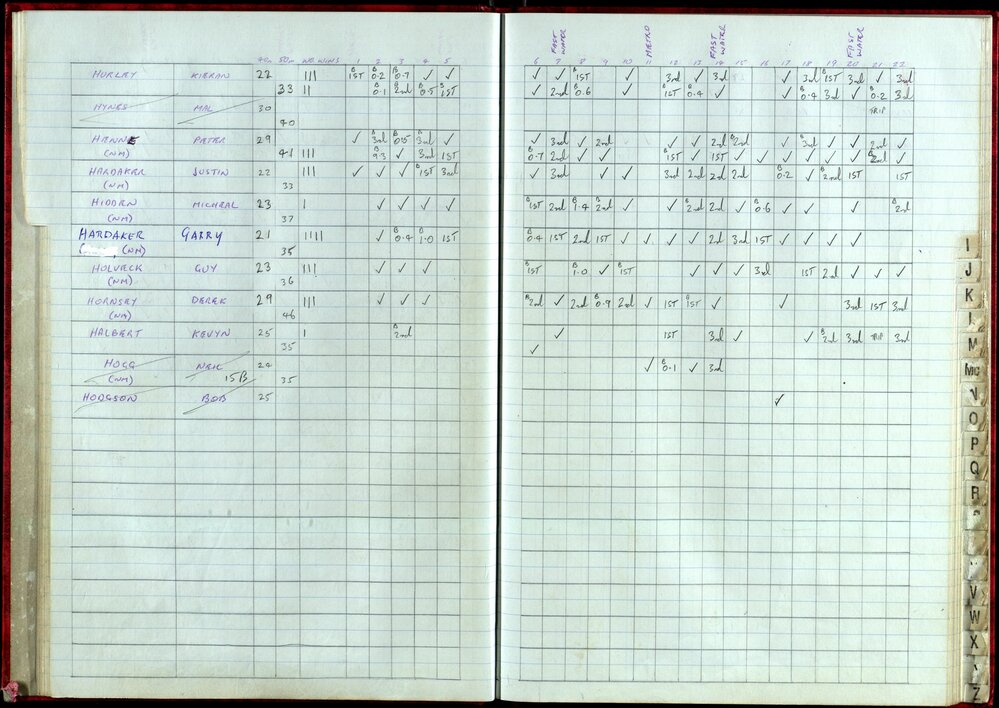 FAST WATER METRO FAST WATER FAST WATER
40m 50m WB WINS 1 2 3 4 5 6 7 8 9 10 11 12 13 14 15 16 17 18 19 20 21 22
HURLEY KIERAN 22 III B 1ST B 0.2 B 0.7 ✓ ✓ ✓ ✓ B 1ST ✓ 3rd ✓ 3rd ✓ 3rd B 1ST 3rd ✓ 3rd
33 II B 0.1 B 2nd B 0.5 B 1ST ✓ 2nd B 0.6 ✓ B 1ST B 0.4 ✓ ✓ B 0.4 3rd ✓ B 0.2 3rd
HYNES MAL 30 TRIP
40
HENNE PETER 29 ✓ B 3rd B B 3rd ✓ ✓ 3rd ✓ 2nd ✓ ✓ 2nd B 2nd ✓ B 3rd ✓ ✓ 2nd ✓
(NM) 41 III B ✓ 3rd 1ST B 0.7 2nd ✓ ✓ B 1ST ✓ 1ST ✓ ✓ ✓ ✓ ✓ ✓ B 2nd ✓
HARDAKER JUSTIN 22 III ✓ ✓ ✓ B 1ST 3rd ✓ 3rd ✓ ✓ 3rd 2nd 2nd 2nd B 0.2 ✓ B 2nd 1ST 1ST
(NM) 33
HIDDEN MICHEAL 23 I ✓ ✓ ✓ ✓ B 1ST 2nd B 1.4 B 2nd ✓ ✓ B 2nd 2nd ✓ B 0.6 ✓ ✓ ✓ B 2nd
(NM) 37
HARDAKER GARRY 21 IIII ✓ B 0.4 B 1.0 1ST B 0.4 1ST 2nd 1ST ✓ ✓ ✓ ✓ 2nd 3rd 1ST ✓ ✓ ✓ ✓
(NM) 35
HOLVECK GUY 23 III ✓ ✓ ✓ B 1ST B 1.0 ✓ B 1ST ✓ ✓ ✓ 3rd 1ST 2nd ✓ ✓ ✓
(NM) 36
HORNSEY DEREK 29 III ✓ ✓ ✓ B 2nd ✓ 2nd B 0.9 2nd ✓ 1ST B 1ST ✓ ✓ 3rd 1ST 3rd
(NM) 46
HALBERT KEVYN 25 I B 2nd ✓ 1ST 3rd ✓ ✓ B 2nd 3rd TRIP 3rd
35 ✓
HOGG NEIL 24 ✓ B 0.1 ✓ 3rd
(NM) 15B 35
HODGSON BOB 25 ✓
I
J
K
L
M
Mc
N
O
P
Q
R
V
W
X
Z